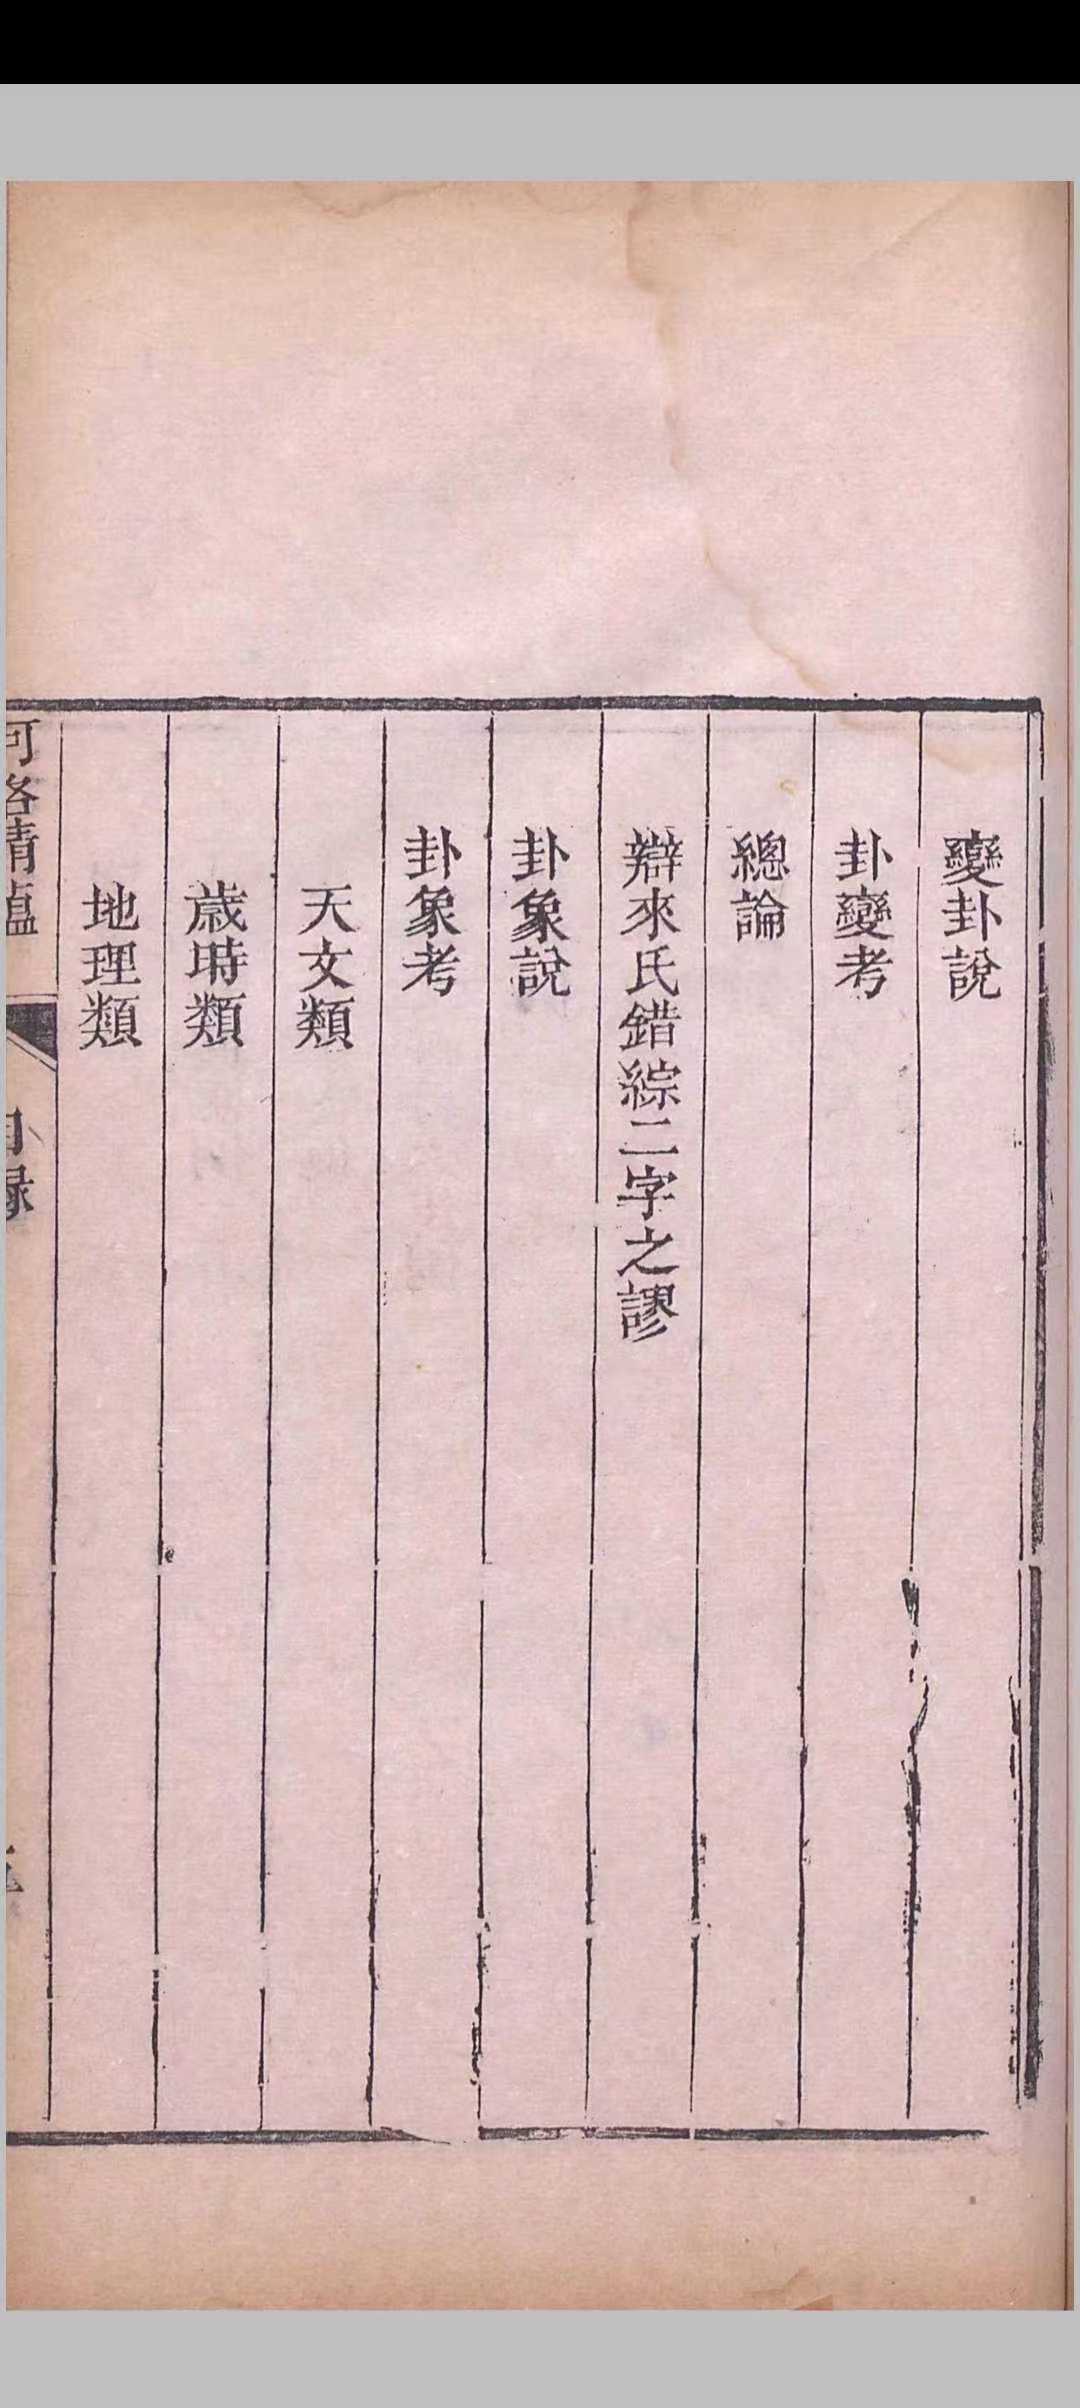 變卦說
卦變考
總論
辯來氏錯綜二字之謬
卦象說
卦象考
天文類
歲時類
地理類
河洛精蘊
目錄